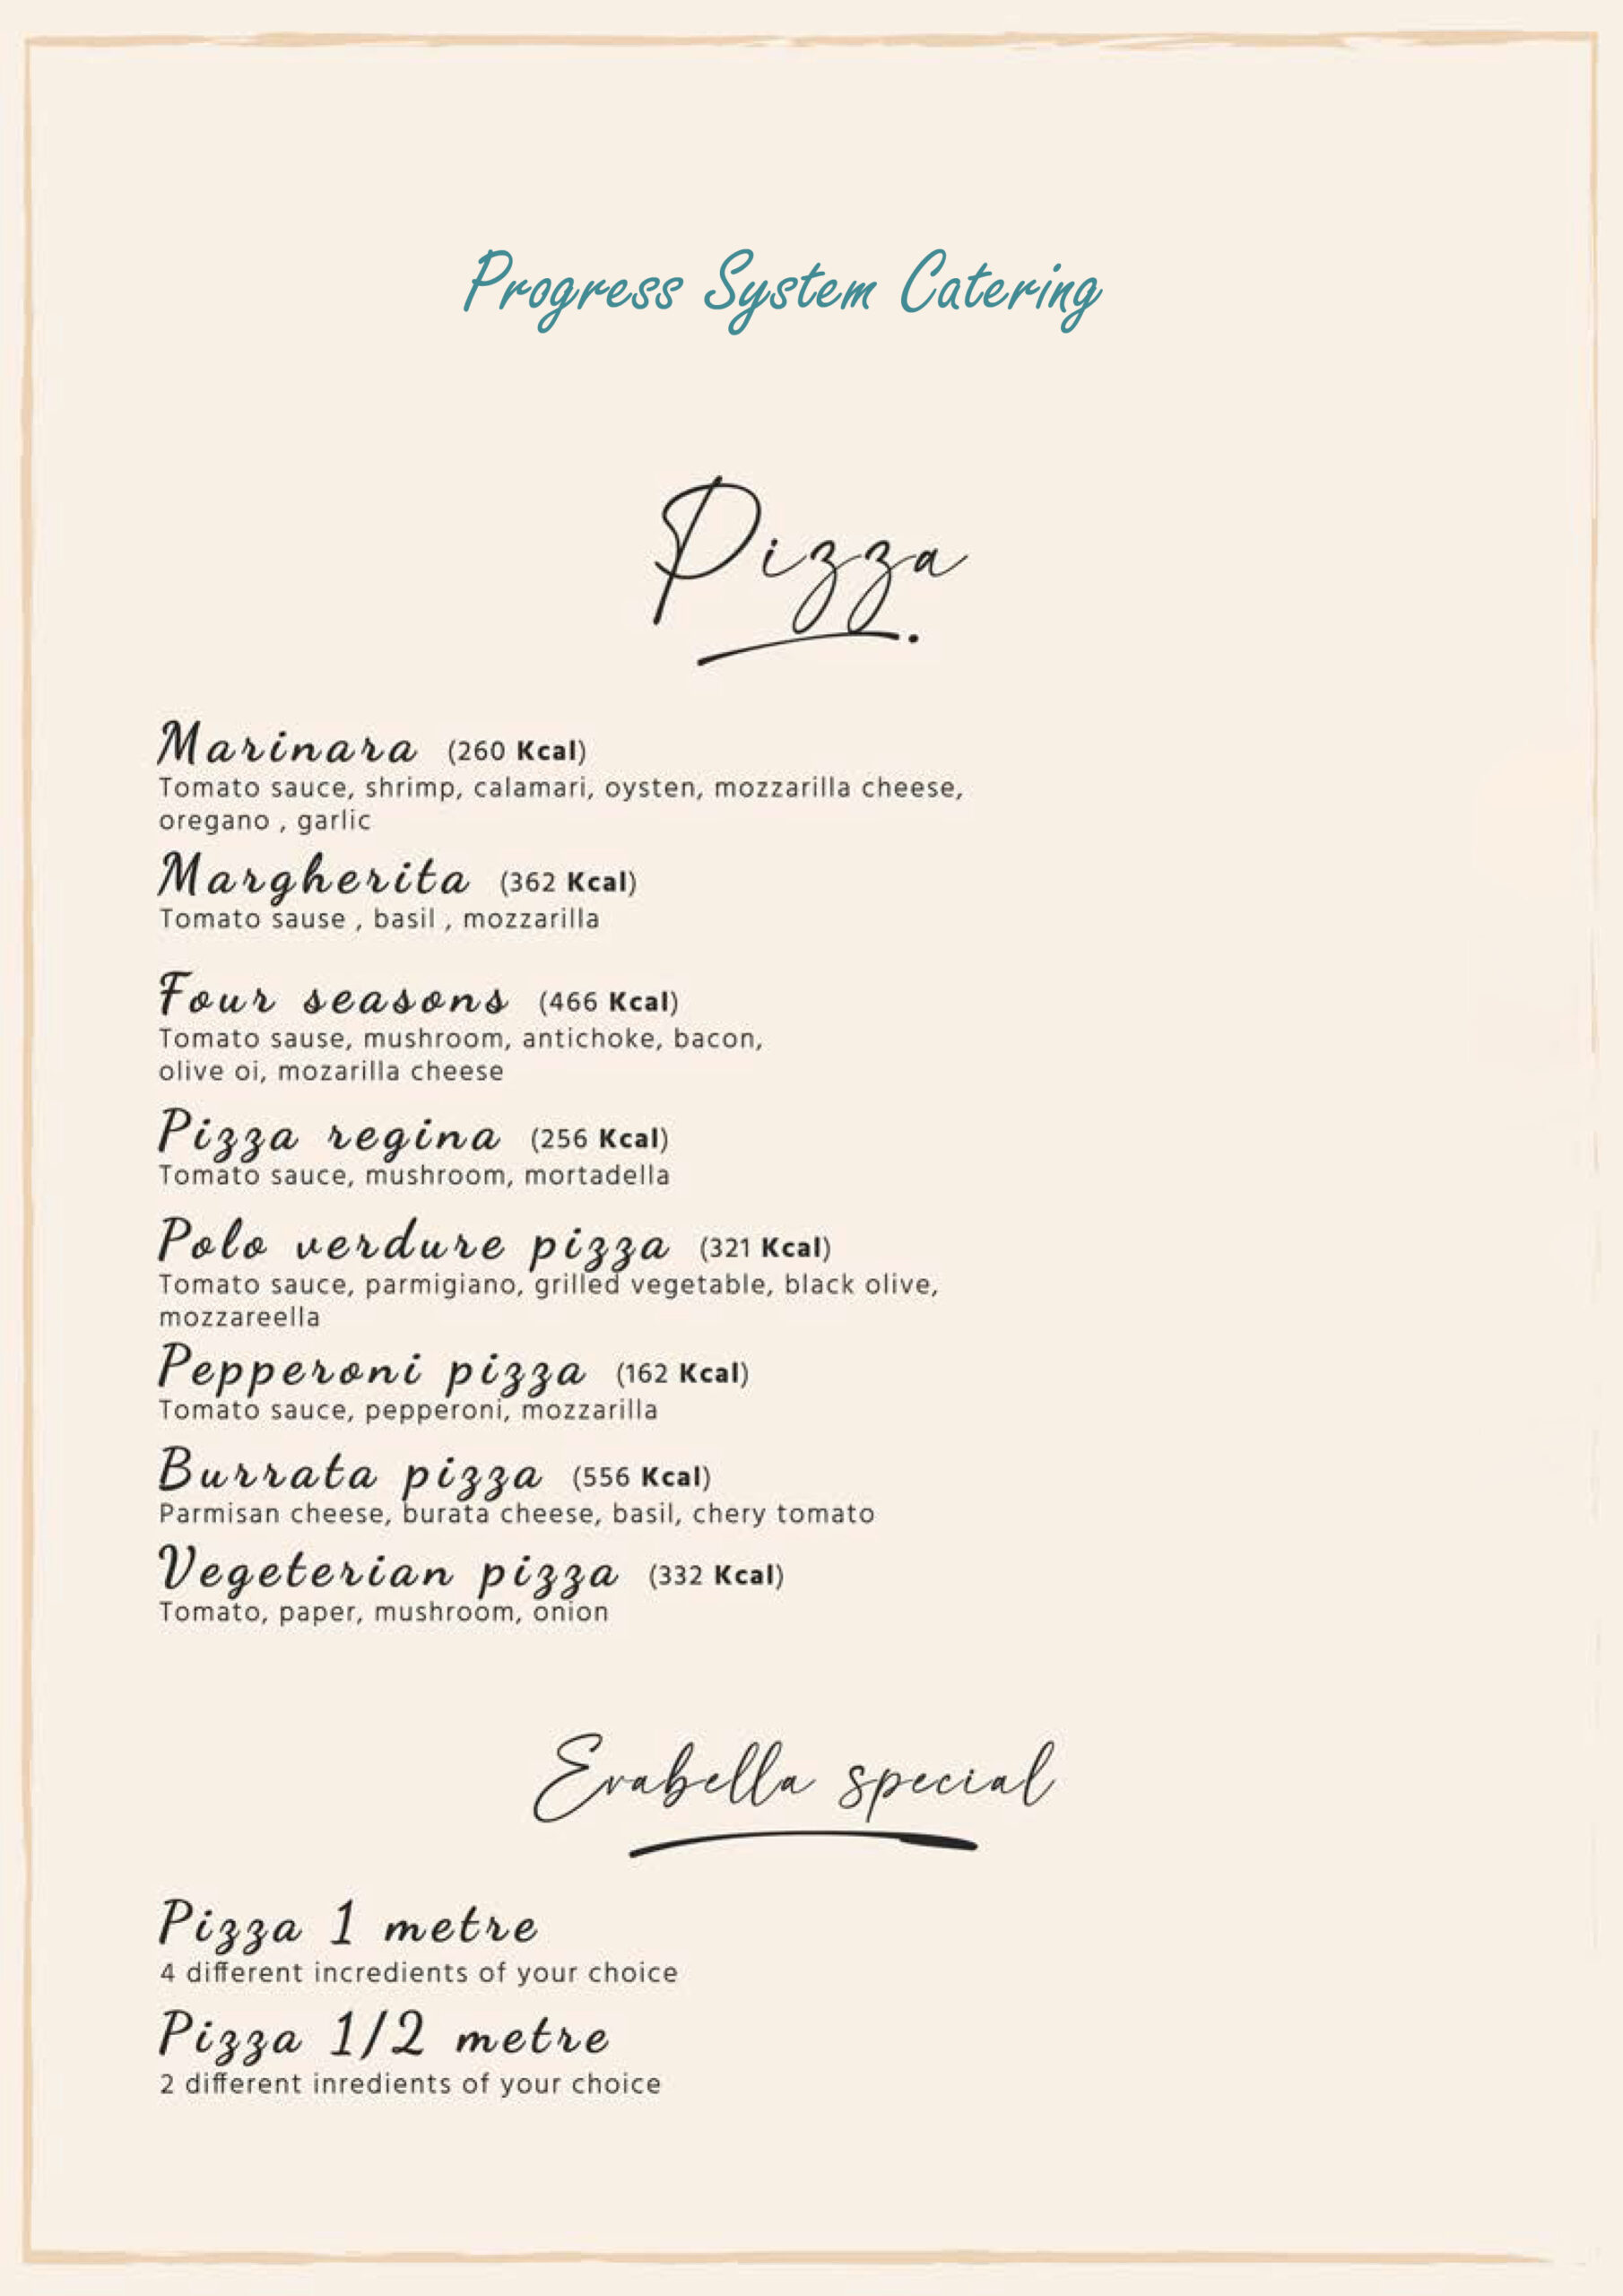 Progress System Catering
Pizza
Marinara (260 Kcal)
Tomato sauce, shrimp, calamari, oysten, mozzarilla cheese,
oregano , garlic
Margherita (362 Kcal)
Tomato sause , basil , mozzarilla
Four seasons (466 Kcal)
Tomato sause, mushroom, antichoke, bacon,
olive oi, mozarilla cheese
Pizza regina (256 Kcal)
Tomato sauce, mushroom, mortadella
Polo verdure pizza (321 Kcal)
Tomato sauce, parmigiano, grilled vegetable, black olive,
mozzareella
Pepperoni pizza (162 Kcal)
Tomato sauce, pepperoni, mozzarilla
Burrata pizza (556 Kcal)
Parmisan cheese, burata cheese, basil, chery tomato
Vegeterian pizza (332 Kcal)
Tomato, paper, mushroom, onion
Erabella special
Pizza 1 metre
4 different incredients of your choice
Pizza 1/2 metre
2 different inredients of your choice